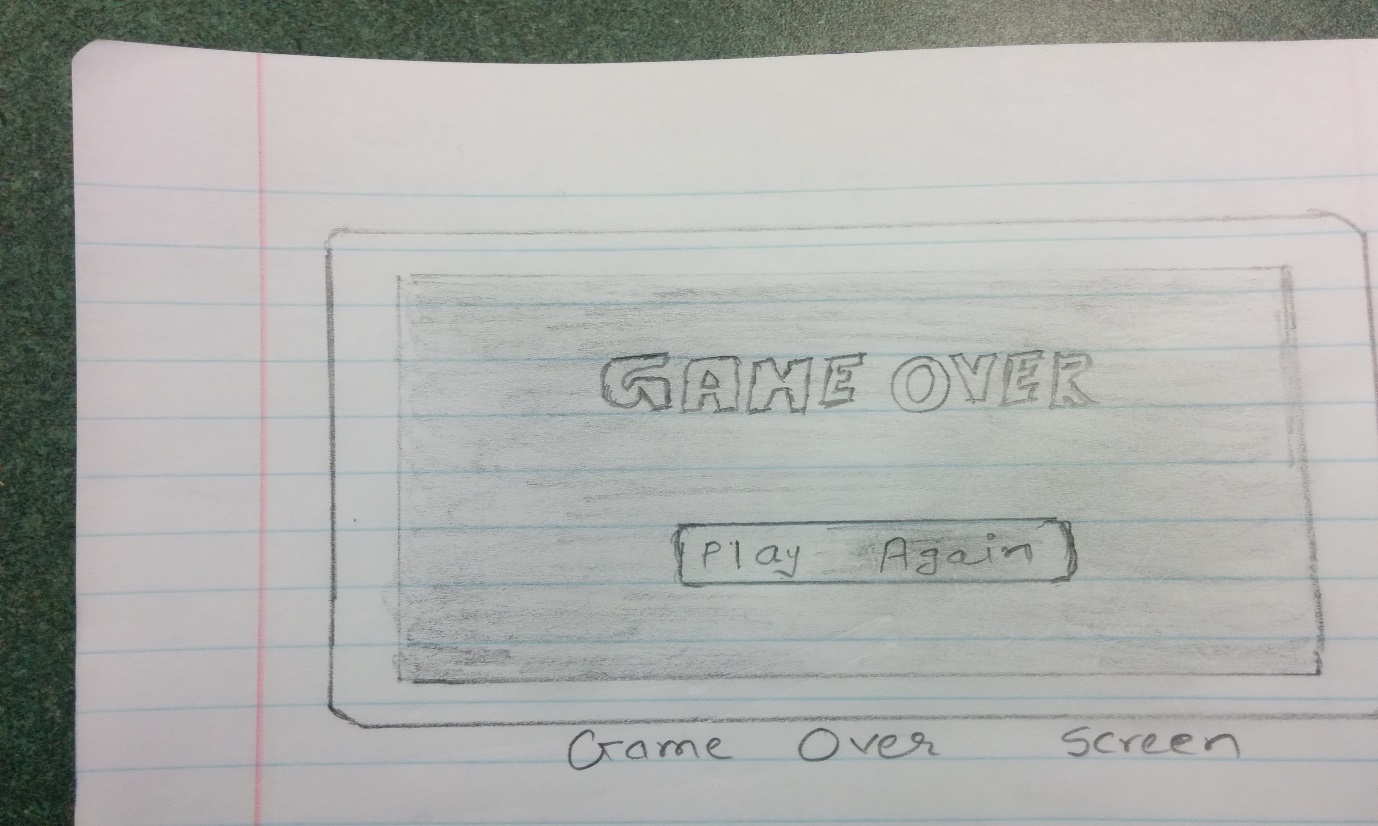 GAME OVER
Play Again
Game Over Screen